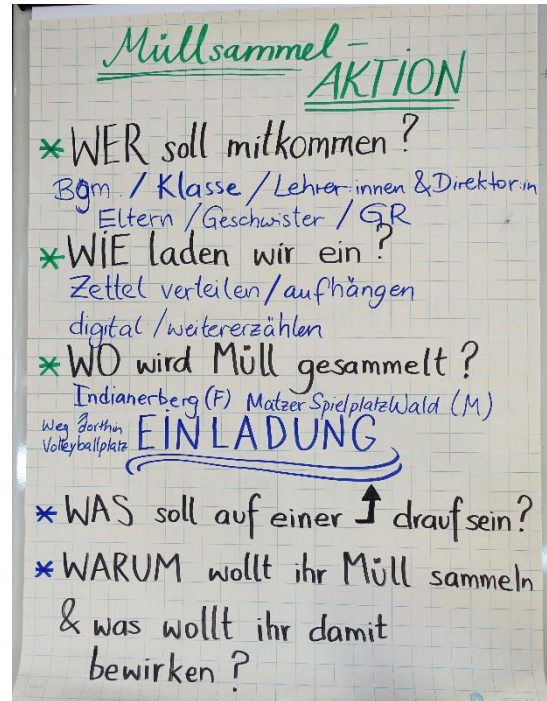 Müllsammel-
AKTION
* WER soll mitkommen?
Bgm / Klasse / Lehrer:innen & Direktor:in
Eltern / Geschwister / GR
* WIE laden wir ein?
Zettel verteilen / aufhängen
digital / weitererzählen
* WO wird Müll gesammelt?
Indianerberg (F) Matzer SpielplatzWald (M)
Weg dorthin
Volleyballplatz
EINLADUNG
* WAS soll auf einer ↑ drauf sein?
* WARUM wollt ihr Müll sammeln
& was wollt ihr damit
bewirken?